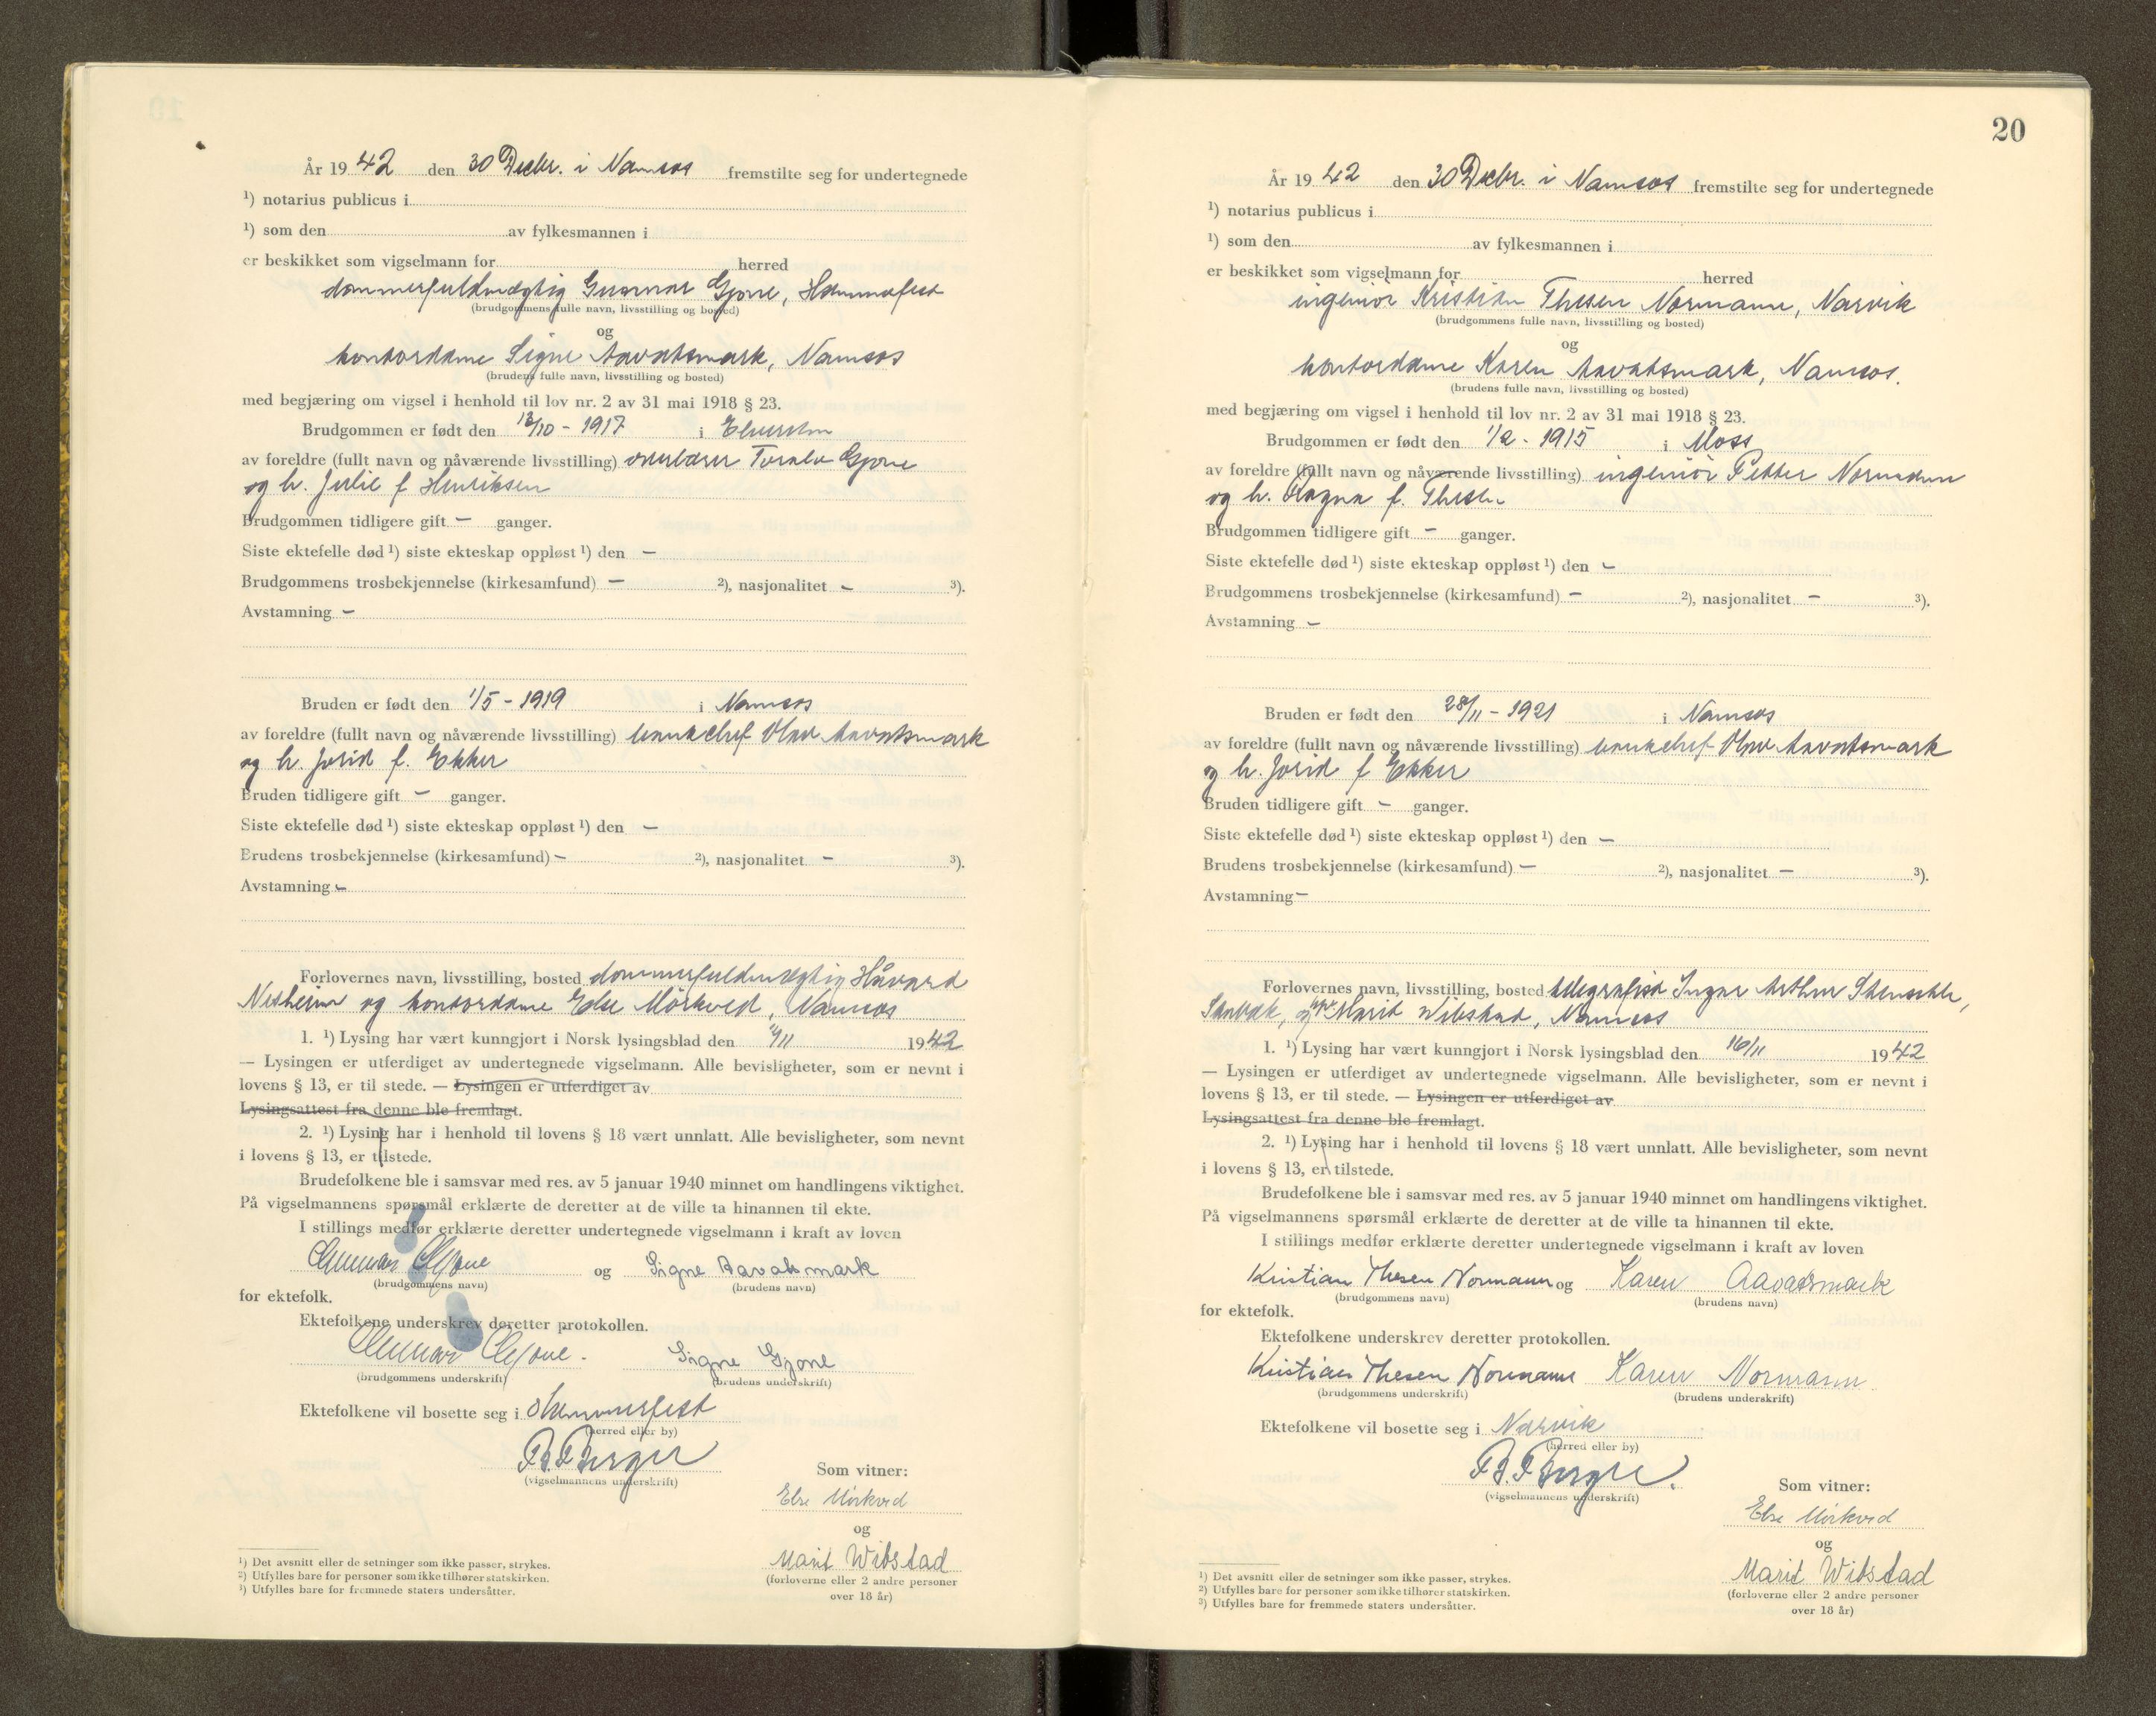 År 1942 den 30 Decbr. i Namsos fremstilte seg for undertegnede
¹) notarius publicus i
¹) som den av fylkesmannen i
er beskikket som vigselmann for herred
dommerfuldmægtig Gunnar Gjone, Hammerfest
(brudgommens fulle navn, livsstilling og bosted)
og
kontordame Signe Aavatsmark, Namsos
(brudens fulle navn, livsstilling og bosted)
med begjæring om vigsel i henhold til lov nr. 2 av 31 mai 1918 § 23.
Brudgommen er født den 12/10 - 1917 i Elverum
av foreldre (fullt navn og nåværende livsstilling) overlærer Toralv Gjone
og h. Julie f Henriksen
Brudgommen tidligere gift - ganger.
Siste ektefelle død ¹) siste ekteskap oppløst ¹) den -
Brudgommens trosbekjennelse (kirkesamfund) - ²), nasjonalitet - ³).
Avstamning -
Bruden er født den 1/5 - 1919 i Namsos
av foreldre (fullt navn og nåværende livsstilling) bankchef Olav Aavatsmark
og h. Jorid f. Ekker
Bruden tidligere gift - ganger.
Siste ektefelle død ¹) siste ekteskap oppløst ¹) den -
Brudens trosbekjennelse (kirkesamfund) - ²), nasjonalitet - ³).
Avstamning -
Forlovernes navn, livsstilling, bosted dommerfuldmægtig Håvard
Nesheim og kontordame Else Mörkved, Namsos
1. ¹) Lysing har vært kunngjort i Norsk lysingsblad den /11 1942
— Lysingen er utferdiget av undertegnede vigselmann. Alle bevisligheter, som er nevnt i
lovens § 13, er til stede. — Lysingen er utferdiget av
Lysingsattest fra denne ble fremlagt.
2. ¹) Lysing har i henhold til lovens § 18 vært unnlatt. Alle bevisligheter, som nevnt
i lovens § 13, er tilstede.
Brudefolkene ble i samsvar med res. av 5 januar 1940 minnet om handlingens viktighet.
På vigselmannens spørsmål erklærte de deretter at de ville ta hinannen til ekte.
I stillings medfør erklærte deretter undertegnede vigselmann i kraft av loven
Gunnar Gjone og Signe Aavatsmark
(brudgommens navn) (brudens navn)
for ektefolk.
Ektefolkene underskrev deretter protokollen.
Gunnar Gjone. Signe Gjone
(brudgommens underskrift) (brudens underskrift)
Ektefolkene vil bosette seg i Hammerfest
(herred eller by)
B. Berger
(vigselmannens underskrift)
Som vitner:
Else Mörkved
og
Marit Wibstad
(forloverne eller 2 andre personer
over 18 år)
¹) Det avsnitt eller de setninger som ikke passer, strykes.
²) Utfylles bare for personer som ikke tilhører statskirken.
³) Utfylles bare for fremmede staters undersåtter.
20
År 1942 den 30 Decbr. i Namsos fremstilte seg for undertegnede
¹) notarius publicus i
¹) som den av fylkesmannen i
er beskikket som vigselmann for herred
ingeniör Kristian Thesen Normann, Narvik
(brudgommens fulle navn, livsstilling og bosted)
og
kontordame Karen Aavatsmark, Namsos.
(brudens fulle navn, livsstilling og bosted)
med begjæring om vigsel i henhold til lov nr. 2 av 31 mai 1918 § 23.
Brudgommen er født den 1/2 - 1915 i Moss
av foreldre (fullt navn og nåværende livsstilling) ingeniör Petter Normann
og h. Ragna f. Thesen
Brudgommen tidligere gift - ganger.
Siste ektefelle død ¹) siste ekteskap oppløst ¹) den -
Brudgommens trosbekjennelse (kirkesamfund) - ²), nasjonalitet - ³).
Avstamning -
Bruden er født den 28/11 - 1921 i Namsos
av foreldre (fullt navn og nåværende livsstilling) bankchef Olav Aavatsmark
og h. Jorid f Ekker
Bruden tidligere gift - ganger.
Siste ektefelle død ¹) siste ekteskap oppløst ¹) den -
Brudens trosbekjennelse (kirkesamfund) - ²), nasjonalitet - ³).
Avstamning -
Forlovernes navn, livsstilling, bosted telegrafist Ingar Arthur
og Marit Wibstad, Namsos
1. ¹) Lysing har vært kunngjort i Norsk lysingsblad den 16/11 1942
— Lysingen er utferdiget av undertegnede vigselmann. Alle bevisligheter, som er nevnt i
lovens § 13, er til stede. — Lysingen er utferdiget av
Lysingsattest fra denne ble fremlagt.
2. ¹) Lysing har i henhold til lovens § 18 vært unnlatt. Alle bevisligheter, som nevnt
i lovens § 13, er tilstede.
Brudefolkene ble i samsvar med res. av 5 januar 1940 minnet om handlingens viktighet.
På vigselmannens spørsmål erklærte de deretter at de ville ta hinannen til ekte.
I stillings medfør erklærte deretter undertegnede vigselmann i kraft av loven
Kristian Thesen Normann og Karen Aavatsmark
(brudgommens navn) (brudens navn)
for ektefolk.
Ektefolkene underskrev deretter protokollen.
Kristian Thesen Normann Karen Normann.
(brudgommens underskrift) (brudens underskrift)
Ektefolkene vil bosette seg i Narvik
(herred eller by)
B. Berger.
(vigselmannens underskrift)
Som vitner:
Else Mörkved
og
Marit Wibstad
(forloverne eller 2 andre personer
over 18 år)
¹) Det avsnitt eller de setninger som ikke passer, strykes.
²) Utfylles bare for personer som ikke tilhører statskirken.
³) Utfylles bare for fremmede staters undersåtter.